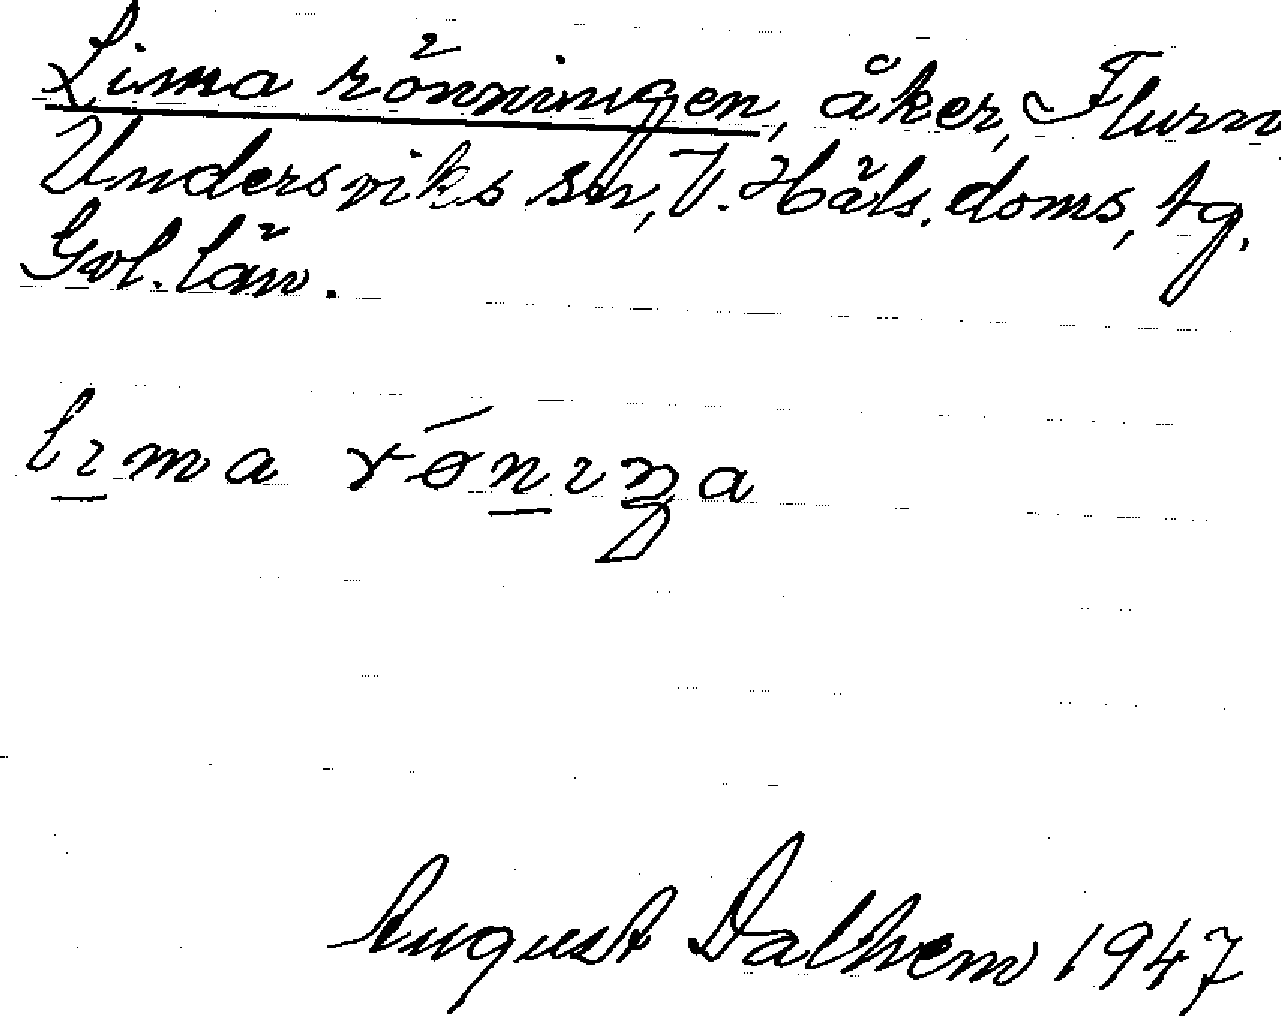 Lima rönningen, åker, Flurn
Undersviks sn, V. Häls. doms, tg.
Gvl. län.
lıma rǿnıŋa
August Dalhem 1947